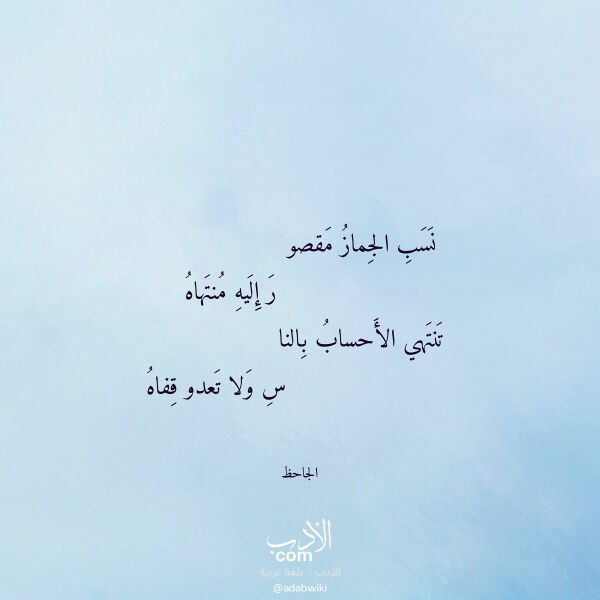 نَسَبِ الجِمازُ مَقصو
رَ إِلَيهِ مُنتَهاهُ
تَنتَهي الأَحسابُ بِالنا
سِ وَلا تَعدو قِفاهُ
الجاحظ
الأدب
com
الأدب .. بلغة عربية
@adabwiki